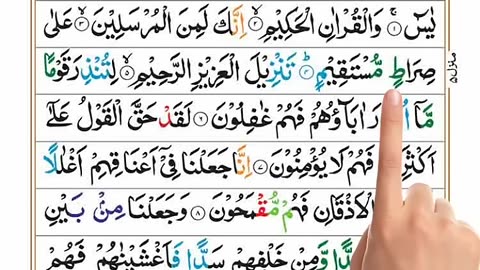 يٰسٓ ۝١ وَالْقُرْاٰنِ الْحَكِيْمِ ۝٢ اِنَّكَ لَمِنَ الْمُرْسَلِيْنَ ۝٣ عَلٰى
صِرَاطٍ مُّسْتَقِيْمٍ ۝٤ تَنْزِيْلَ الْعَزِيْزِ الرَّحِيْمِ ۝٥ لِتُنْذِرَ قَوْمًا
مَّاۤ اٰبَآؤُهُمْ فَهُمْ غٰفِلُوْنَ ۝٦ لَقَدْ حَقَّ الْقَوْلُ عَلٰٓى
فَهُمْ لَا يُؤْمِنُوْنَ ۝٧ اِنَّا جَعَلْنَا فِيْۤ اَعْنَاقِهِمْ اَغْلٰلًا
الْاَذْقَانِ فَهُمْ مُّقْمَحُوْنَ ۝٨ وَجَعَلْنَا مِنْۢ بَيْنِ
سَدًّا وَّمِنْ خَلْفِهِمْ سَدًّا فَاَغْشَيْنٰهُمْ فَهُمْ
منزل ٥